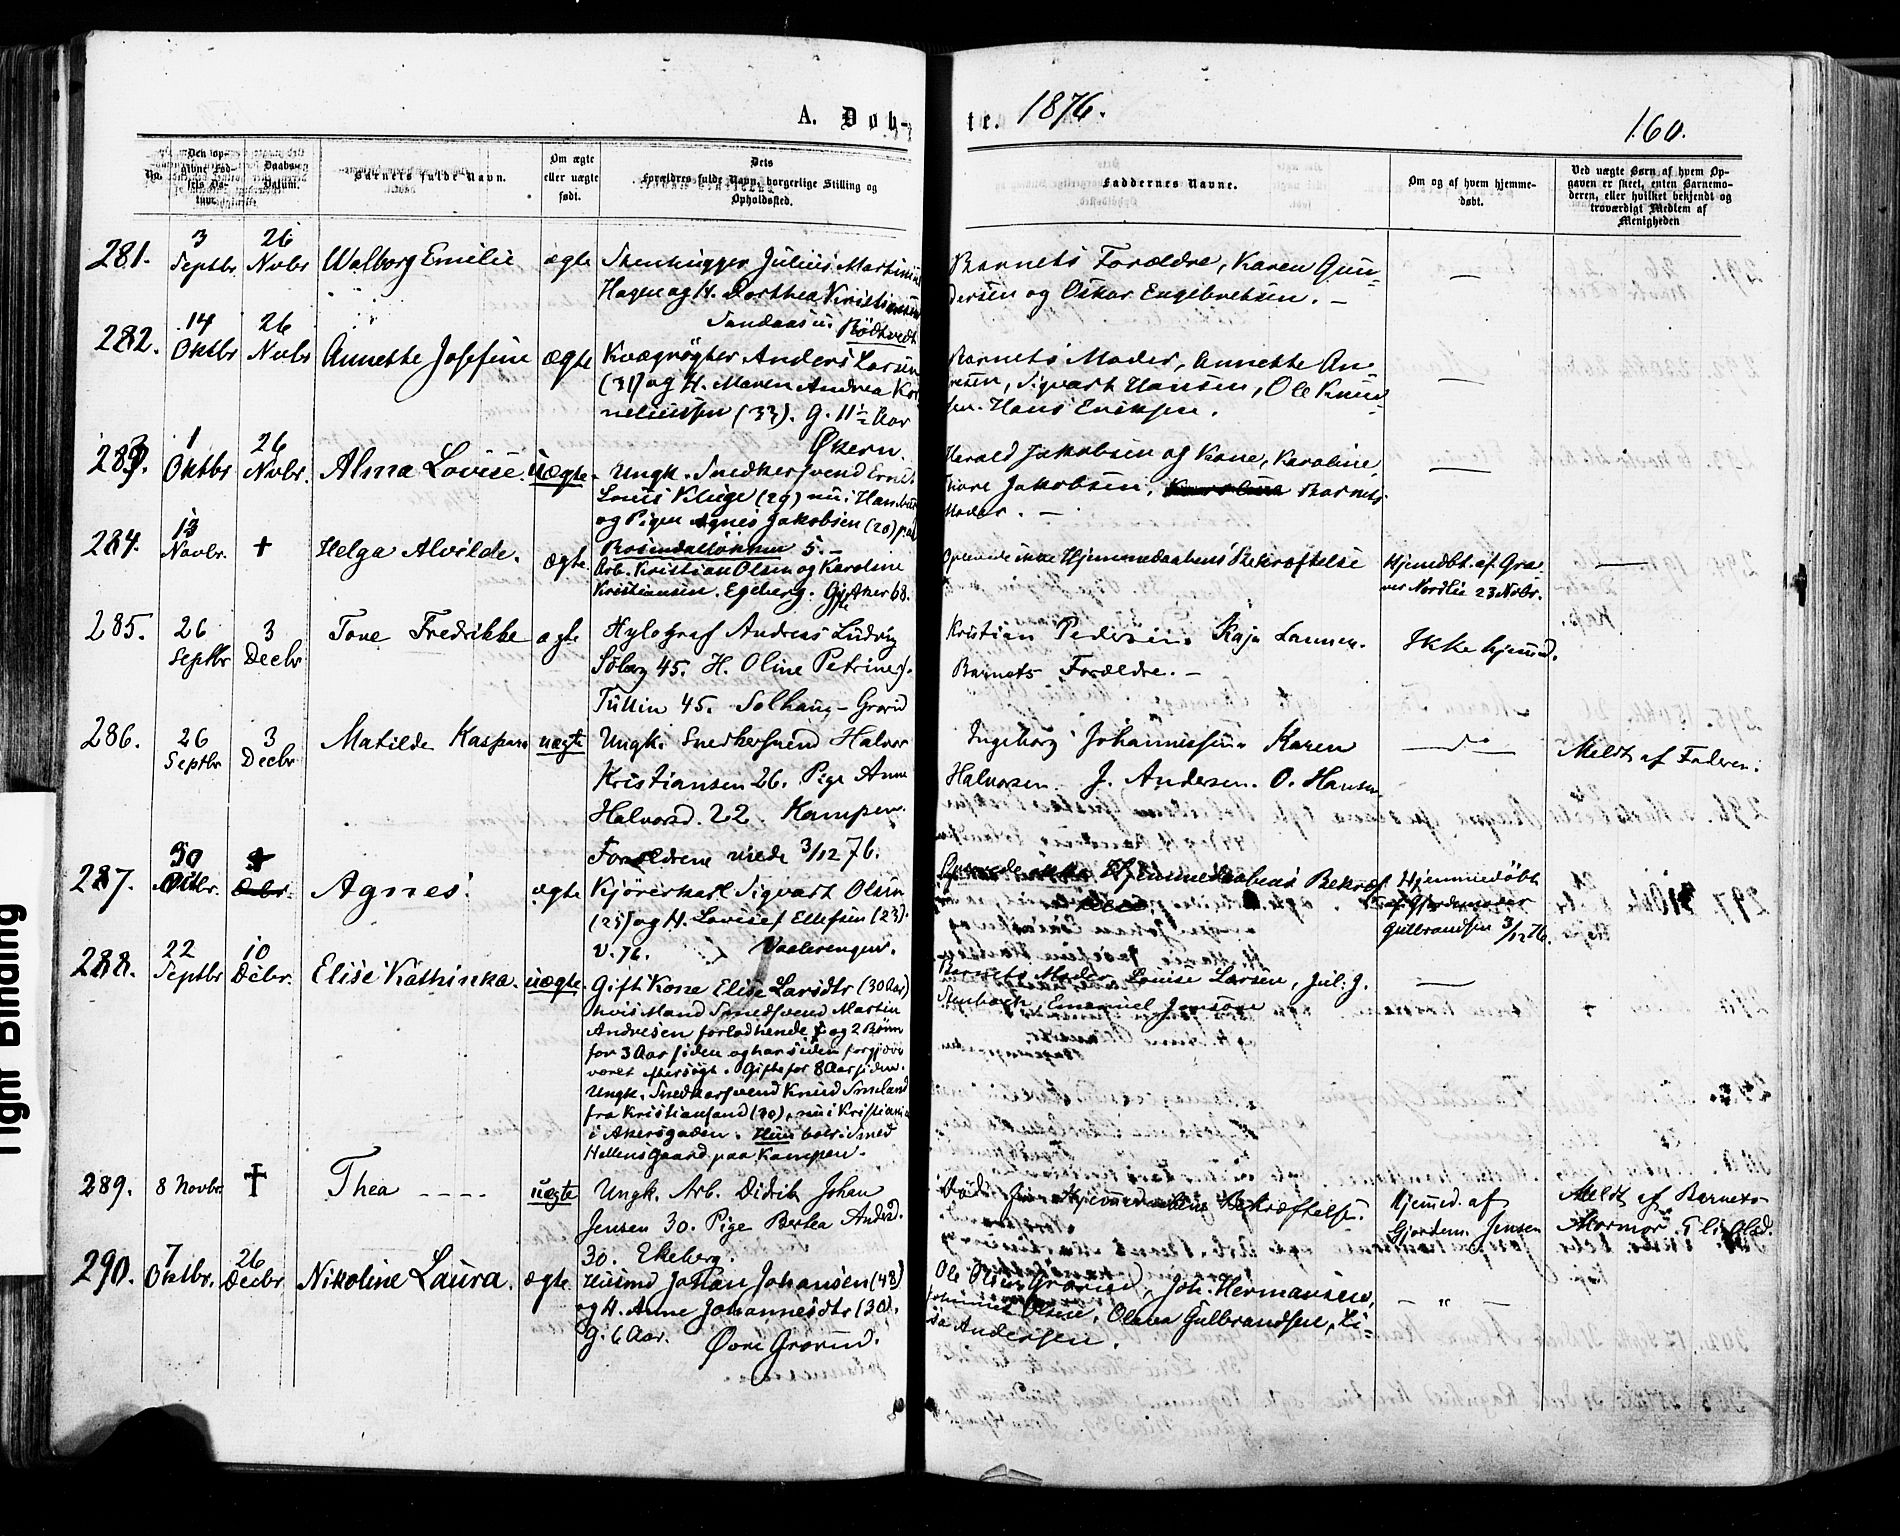 A. Døb-
te. 1876.
160.
No.
Den op-
givne Fød-
sels Da-
tum.
Daabs-
Datum.
Barnets fulde Navn.
Om ægte
eller uægte
født.
Dets
Forældres fulde Navn, borgerlige Stilling og
Opholdssted.
Faddernes Navne.
Om og af hvem hjemme-
døbt.
Ved uægte Børn af hvem Op-
gaven er skeet, enten Barnemo-
deren, eller hvilket bekjendt og
troværdigt Medlem af
Menigheden
281. 3 Septbr 26 Novbr Walborg Emilie ægte
Stenhugger Julius Martinius
Hagen og H. Dorthea Kristiansen
Sandaasen. Rödtvedt
Barnets Forældre, Karen Gun-
dersen og Oskar Engebretsen. —
—
282. 14 Oktbr 26 Novbr Annette Josefine ægte
Kvægrögter Anders Larsen
(31) og H. Maren Andrea Kor
neliussen (33). G. 11½ Aar
Økern.
Barnets Moder, Annette An-
dresen, Sigvart Hansen, Ole Knud-
sen. Hans Eriksen.
—
283. 1 Oktbr 26 Novbr. Alma Lovise. uægte.
Ungk. Snedkersvend Ernst
Louis Kluge (29) nu i Hamburg
og Pigen Agnes Jakobsen (20) paa
Rosendalløkken 5. —
Harald Jakobsen og Kone, Karoline
Thore Jakobsen, Barnets
Moder. —
—
284. 13 Novbr. + Helga Alvilde. ægte.
Arb. Kristian Olsen og Karoline
Kristiansen. Egeberg. Gifte Aker 68.
Oplevede ikke Hjemmedaabens Bekræftelse
Hjemdbt. af Gra-
ver Nordlie 23 Novbr.
—
285. 26 Septbr 3 Decbr Tove Fredrikke ægte
Hylograf Andreas Ludvig
Solberg 45. H. Oline Petrine f.
Tullin 45. Solhaug - Grorud
Kristian Pedersen. Kaja Larsen.
Barnets Forældre. —
Ikke hjemd.
286. 26 Septbr 3 Decbr Matilde Kaspara uægte
Ungk. Snedkersvend Halvor
Kristiansen 26. Pige Anne
Halvorsd. 22 Kampen.
Forældrene viede 3/12 76.
Ingeborg Johannissen. Karen
Halvorsen. J. Andersen. O. Hansen
— do —
Meldt af Faderen.
287. 30 Oktbr. + Agnes. ægte
Kjørerkarl Sigvart Olsen
(25) og H. Lovise f Ellefsen (23).
V. 76. Vaalerengen.
Oplevede ikke Hjemmedaabens Bekræf-
telse
Hjemmedøbt
af Gjordemoder
Gulbrandsen 3/12 76.
288. 22 Septbr 10 Decbr. Elise Kathinka. uægte.
Gift Kone Elise Larsdtr (30 Aar)
hvis Mand Smedsvend Martin
Andresen forlod hende og 2 Børn
for 3 Aar siden og har siden forgjæves
været eftersøgt. Gifte for 8 Aar siden.
Ungk. Snedkersvend Knud Smeland
fra Kristiansand (30), nu i Kristiania
i Akersgaden. Hun bor i Smed
Hellens gaard paa Kampen.
Barnets Moder Louise Larsen, Jul. J.
Stenbach, Emanuel Jonsson
—
289. 8 Novbr. † Thea ---- uægte
Ungk. Arb. Didrik Johan
Jensen 30. Pige Berthea Andersd.
30. Ekeberg.
Död før Hjemmedaabens Bekræftelse.
Hjemd. af
Gjordem. Jensen
Meldt af Barnets
Mormor
290. 7 Oktbr. 26 Decbr Nikoline Laura. ægte
Husmd Johan Johansen (48)
og H. Anne Johannesdtr (30).
G. 6 Aar. Øvre Grorud.
Ole Olsen Grorud, Joh. Hermansen,
Johannes Olsen, Olava Gulbrandsen, Li-
sa Andersen.
— " —
Tight Binding